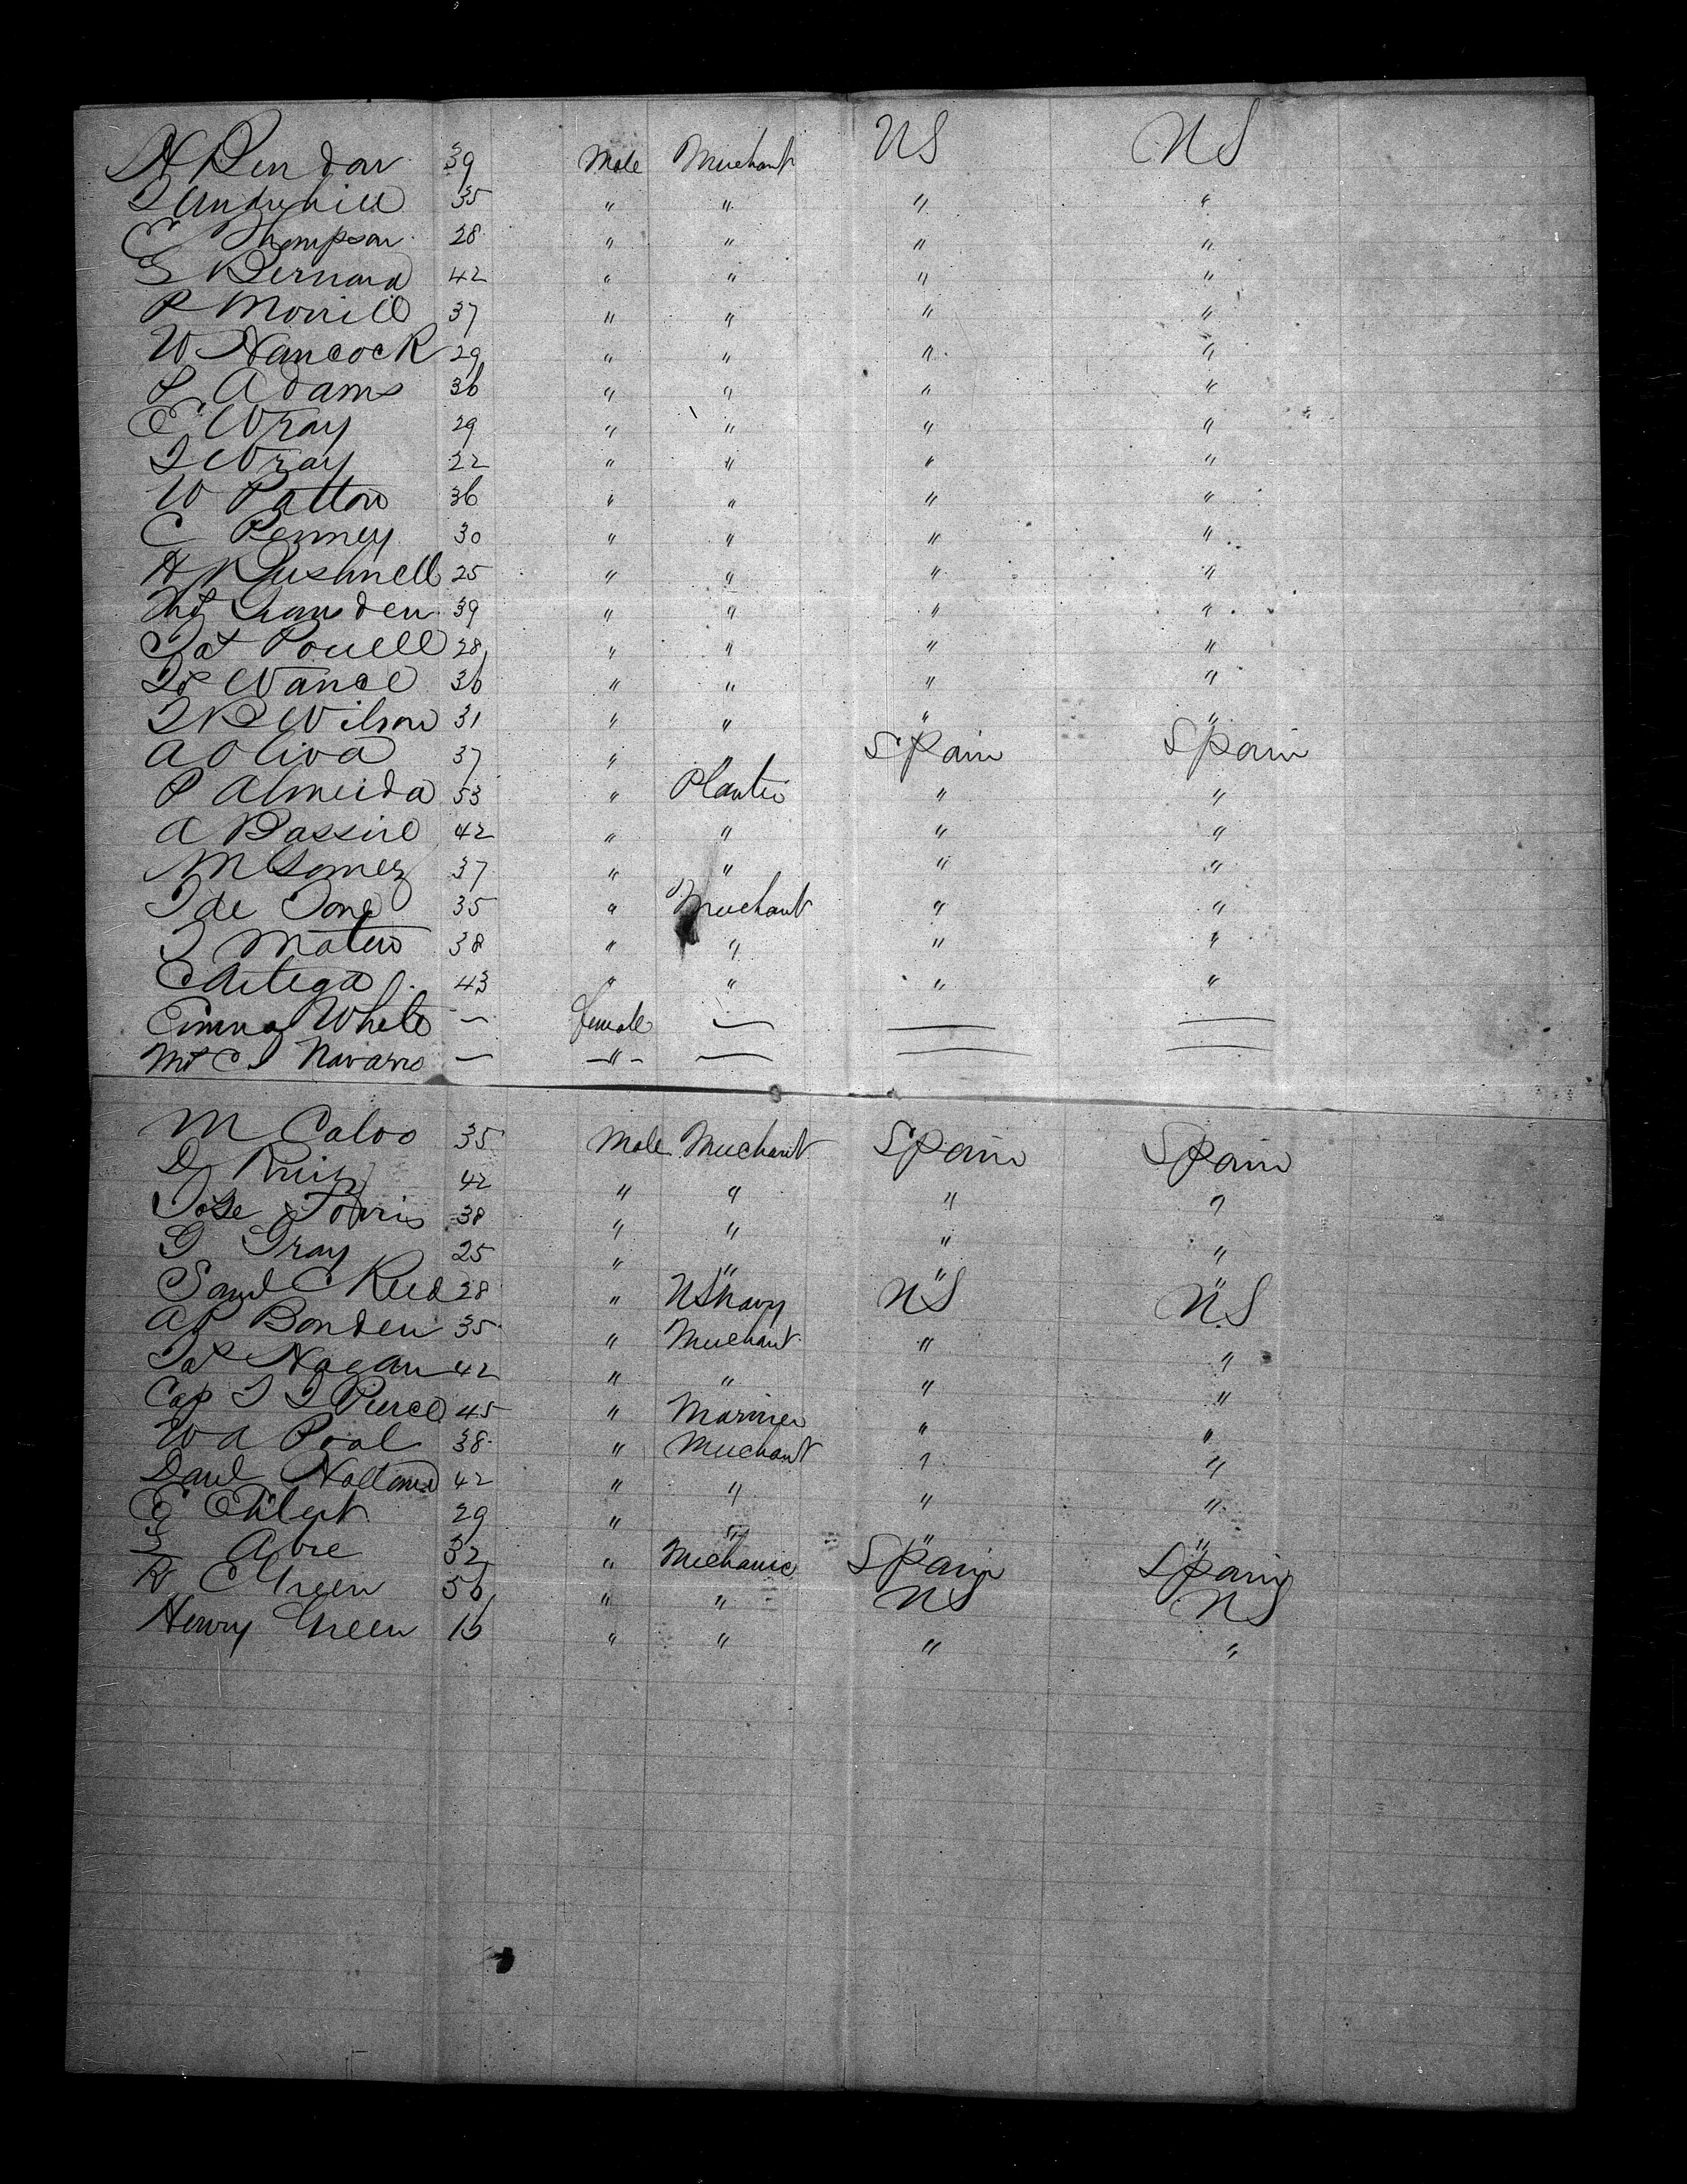 H Bendar 39 Male Merchant US US
J Underhill 35 " " " "
C Thompson 28 " " " "
G Bernard 42 " " " "
P Morrill 37 " " " "
W Hancock 29 " " " "
S Adams 36 " " " "
E Wray 29 " " " "
J Wray 22 " " " "
W Patton 36 " " " "
C Penney 30 " " " "
H Bushnell 25 " " " "
39 " " " "
Powell 28 " " " "
Vance 36 " " " "
J B Wilson 31 " " " "
A Oliva 37 " " Spain Spain
P Almeida 53 " Planter " "
A Bassire 42 " " " "
M Gomez 37 " " " "
J de 35 " Merchant " "
J Mateo 38 " " " "
C Artega 43 " " " "
Emma White — female — — —
C J Navarro — " — — —
M Calvo 35 Male Merchant Spain Spain
D Ruiz 42 " " " "
Jose Torris 38 " " " "
G Gray 25 " " " "
Saml C Reed 28 " US Navy US US
A P Bonden 35 " Merchant " "
Jas Hogan 42 " " " "
Cap J J Pierce 45 " Mariner " "
W A Pool 38 " Merchant " "
Danl 42 " " " "
E Ehlert 29 " " " "
Abre 32 " Mechanic Spain Spain
H C Green 56 " " US US
Henry Green 16 " " " "